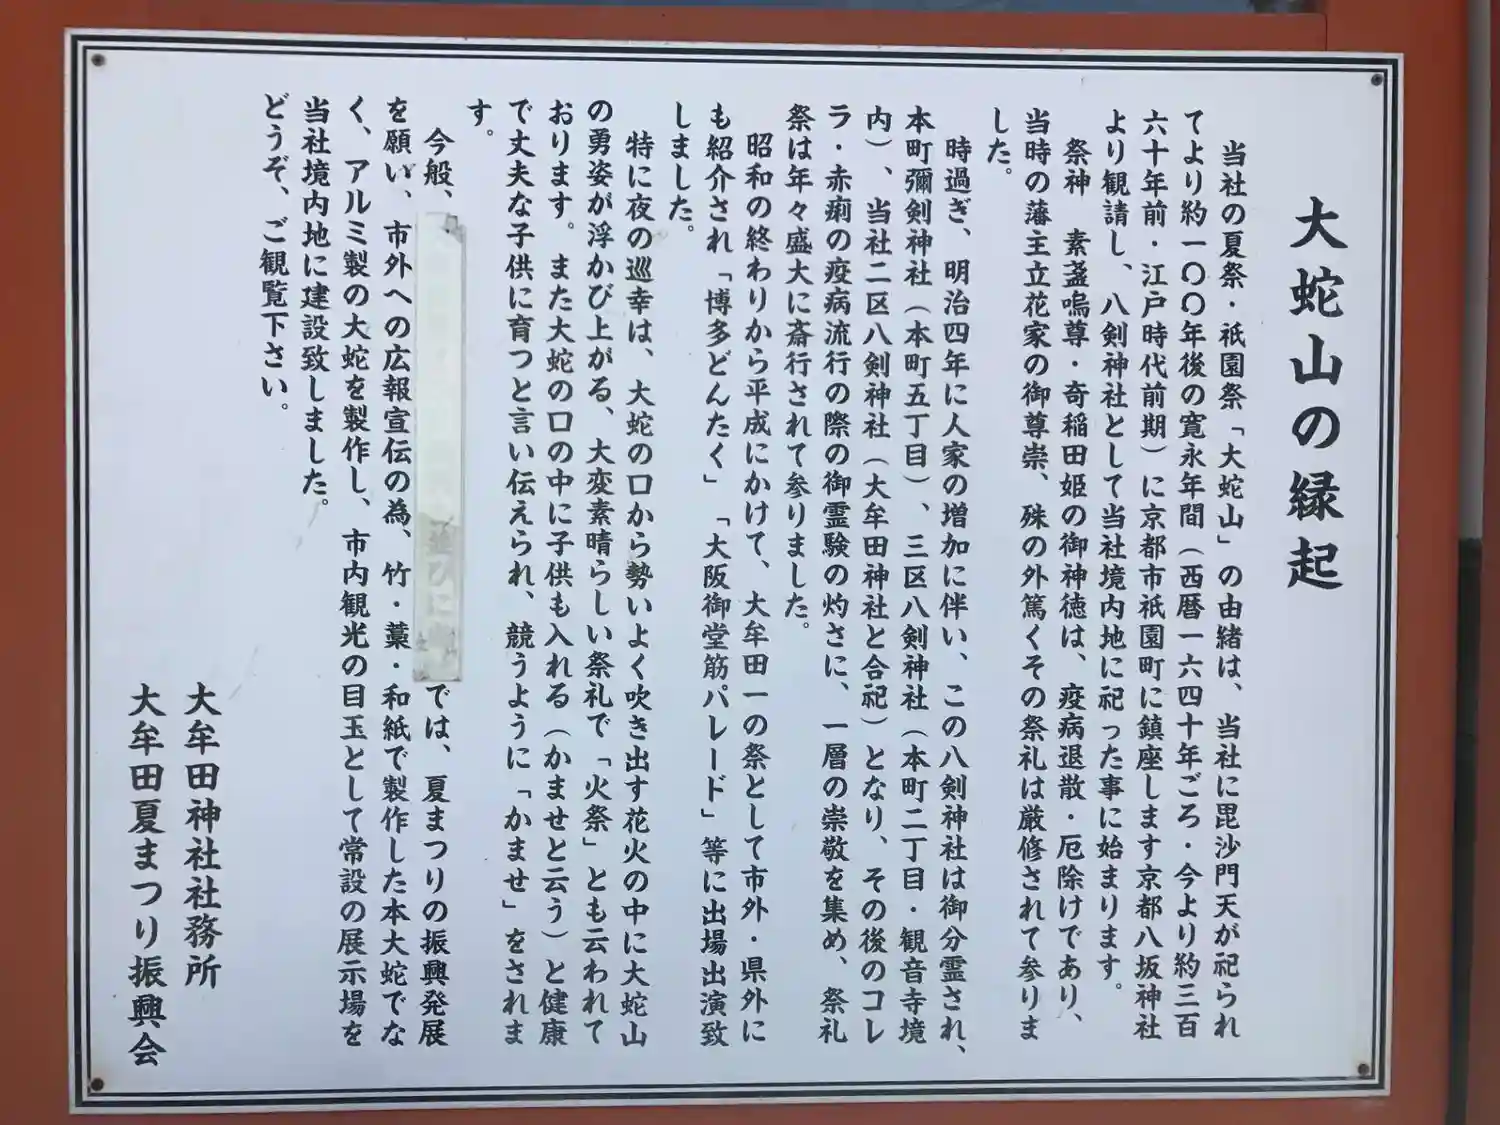 大蛇山の縁起
当社の夏祭・祇園祭「大蛇山」の由緒は、当社に毘沙門天が祀られ
てより約一〇〇年後の寛永年間（西暦一六四十年ごろ・今より約三百
六十年前・江戸時代前期）に京都市祇園町に鎮座します京都八坂神社
より観請し、八剣神社として当社境内地に祀った事に始まります。
祭神　素盞嗚尊・奇稲田姫の御神徳は、疫病退散・厄除けであり、
当時の藩主立花家の御尊崇、殊の外篤くその祭礼は厳修されて参りま
した。
時過ぎ、明治四年に人家の増加に伴い、この八剣神社は御分霊され、
本町彌剣神社（本町五丁目）、三区八剣神社（本町二丁目・観音寺境
内）、当社二区八剣神社（大牟田神社と合祀）となり、その後のコレ
ラ・赤痢の疫病流行の際の御霊験の灼さに、一層の崇敬を集め、祭礼
祭は年々盛大に斎行されて参りました。
昭和の終わりから平成にかけて、大牟田一の祭として市外・県外に
も紹介され「博多どんたく」「大阪御堂筋パレード」等に出場出演致
しました。
特に夜の巡幸は、大蛇の口から勢いよく吹き出す花火の中に大蛇山
の勇姿が浮かび上がる、大変素晴らしい祭礼で「火祭」とも云われて
おります。また大蛇の口の中に子供も入れる（かませと云う）と健康
で丈夫な子供に育つと言い伝えられ、競うように「かませ」をされま
す。
今般、では、夏まつりの振興発展
を願い、市外への広報宣伝の為、竹・藁・和紙で製作した本大蛇でな
く、アルミ製の大蛇を製作し、市内観光の目玉として常設の展示場を
当社境内地に建設致しました。
どうぞ、ご観覧下さい。
大牟田神社社務所
大牟田夏まつり振興会